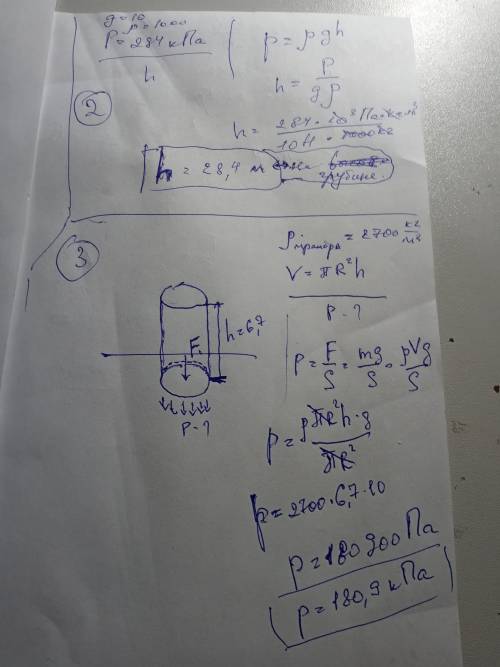 g=10
ρ=1000
P=284 кПа
h
p = ρgh
h = P/gρ
②
h = 284 · 10³ Па · м³ / 10 Н · 1000 кг
h = 28,4 м на глубине.
③
ρ мрамора = 2700 кг/м³
V = πR²h
P - ?
h=6,7
F
P - ?
P = F/S = mg/S = ρVg/S
p = ρπR²h·g / πR²
p = 2700·6,7·10
p = 180900 Па
p = 180,9 кПа